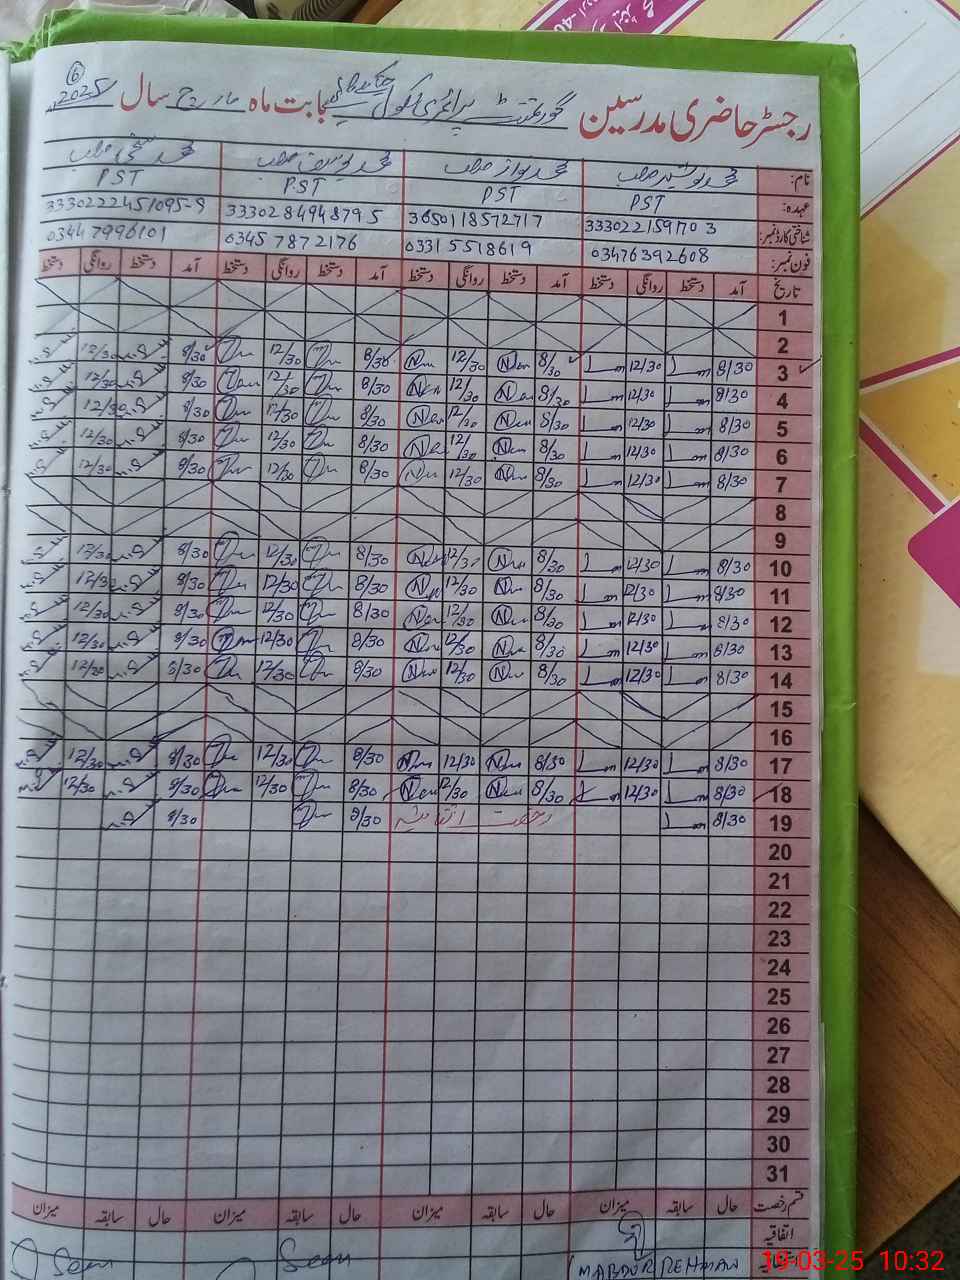 رجسٹر حاضری مدرسین گورنمنٹ پرائمری سکول بابت ماہ مارچ سال 2025
6
نام: محمد نواز صاحب محمد یوسف صاحب
عہدہ: PST PST PST PST
شناختی کارڈ نمبر: 3330221591703 3650118572717 3330284948795 3330222451095-9
فون نمبر: 03476392608 03315518619 03457872176 03447996101
تاریخ آمد دستخط روانگی دستخط آمد دستخط روانگی دستخط آمد دستخط روانگی دستخط آمد دستخط روانگی دستخط
1
2
3 8/30 12/30 8/30 12/30 8/30 12/30 8/30 12/30
4 8/30 12/30 8/30 12/30 8/30 12/30 8/30 12/30
5 8/30 12/30 8/30 12/30 8/30 12/30 8/30 12/30
6 8/30 12/30 8/30 12/30 8/30 12/30 8/30 12/30
7 8/30 12/30 8/30 12/30 8/30 12/30 8/30 12/30
8
9
10 8/30 12/30 8/30 12/30 8/30 12/30 8/30 12/30
11 8/30 12/30 8/30 12/30 8/30 12/30 8/30 12/30
12 8/30 12/30 8/30 12/30 8/30 12/30 8/30 12/30
13 8/30 12/30 8/30 12/30 8/30 12/30 8/30 12/30
14 8/30 12/30 8/30 12/30 8/30 12/30 8/30 12/30
15
16
17 8/30 12/30 8/30 12/30 8/30 12/30 8/30 12/30
18 8/30 12/30 8/30 12/30 8/30 12/30 8/30 12/30
19 8/30 رخصت اتفاقیہ 8/30 8/30
20
21
22
23
24
25
26
27
28
29
30
31
قسم رخصت حال سابقہ میزان حال سابقہ میزان حال سابقہ میزان حال سابقہ میزان
اتفاقیہ
Seen Seen
19-03-25 10:32